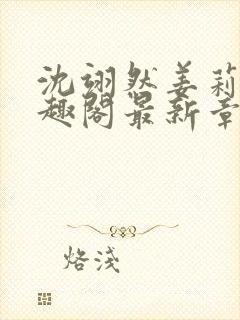 沈翊然姜莉
趣阁最新章
烙浅